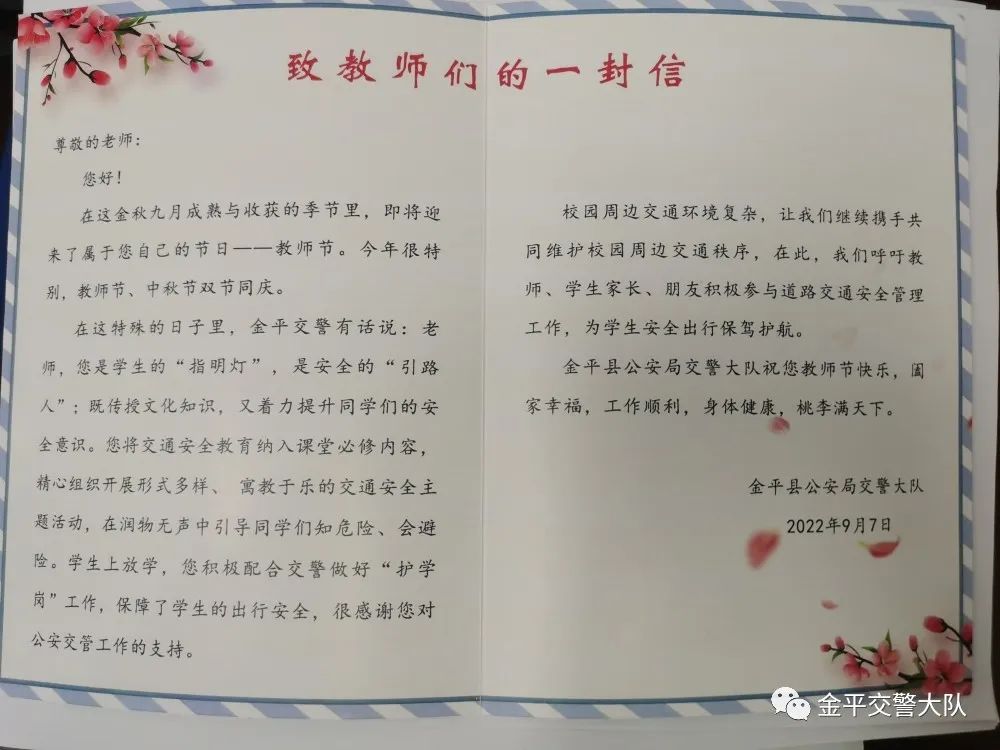 致教师们的一封信
尊敬的老师：
您好！
在这金秋九月成熟与收获的季节里，即将迎
来了属于您自己的节日——教师节。今年很特
别，教师节、中秋节双节同庆。
在这特殊的日子里，金平交警有话说：老
师，您是学生的“指明灯”，是安全的“引路
人”；既传授文化知识，又着力提升同学们的安
全意识。您将交通安全教育纳入课堂必修内容，
精心组织开展形式多样、寓教于乐的交通安全主
题活动，在润物无声中引导同学们知危险、会避
险。学生上放学，您积极配合交警做好“护学
岗”工作，保障了学生的出行安全，很感谢您对
公安交管工作的支持。
校园周边交通环境复杂，让我们继续携手共
同维护校园周边交通秩序，在此，我们呼吁教
师、学生家长、朋友积极参与道路交通安全管理
工作，为学生安全出行保驾护航。
金平县公安局交警大队祝您教师节快乐，阖
家幸福，工作顺利，身体健康，桃李满天下。
金平县公安局交警大队
2022年9月7日
金平交警大队